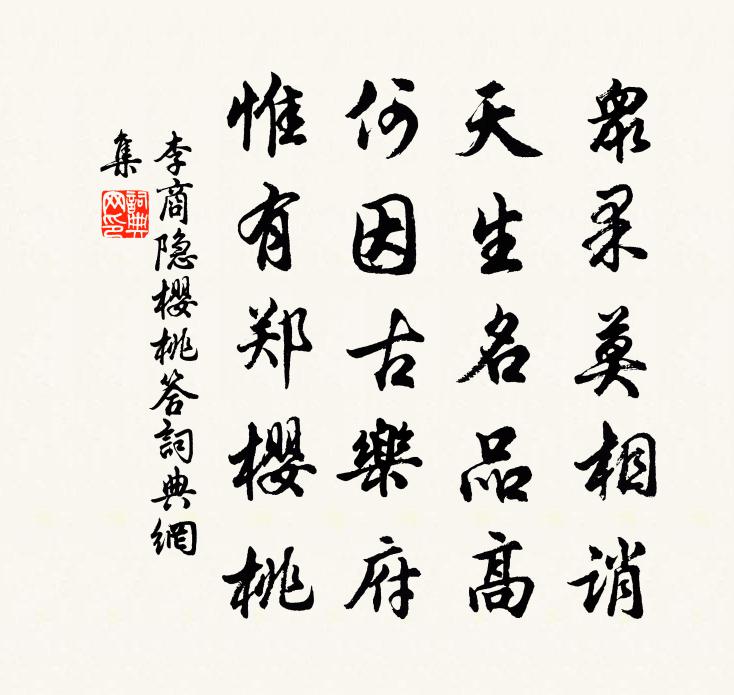 眾果莫相誚
天生名品高
何因古樂府
惟有郑櫻桃
李商隐櫻桃答詞典網
集
詞典网印